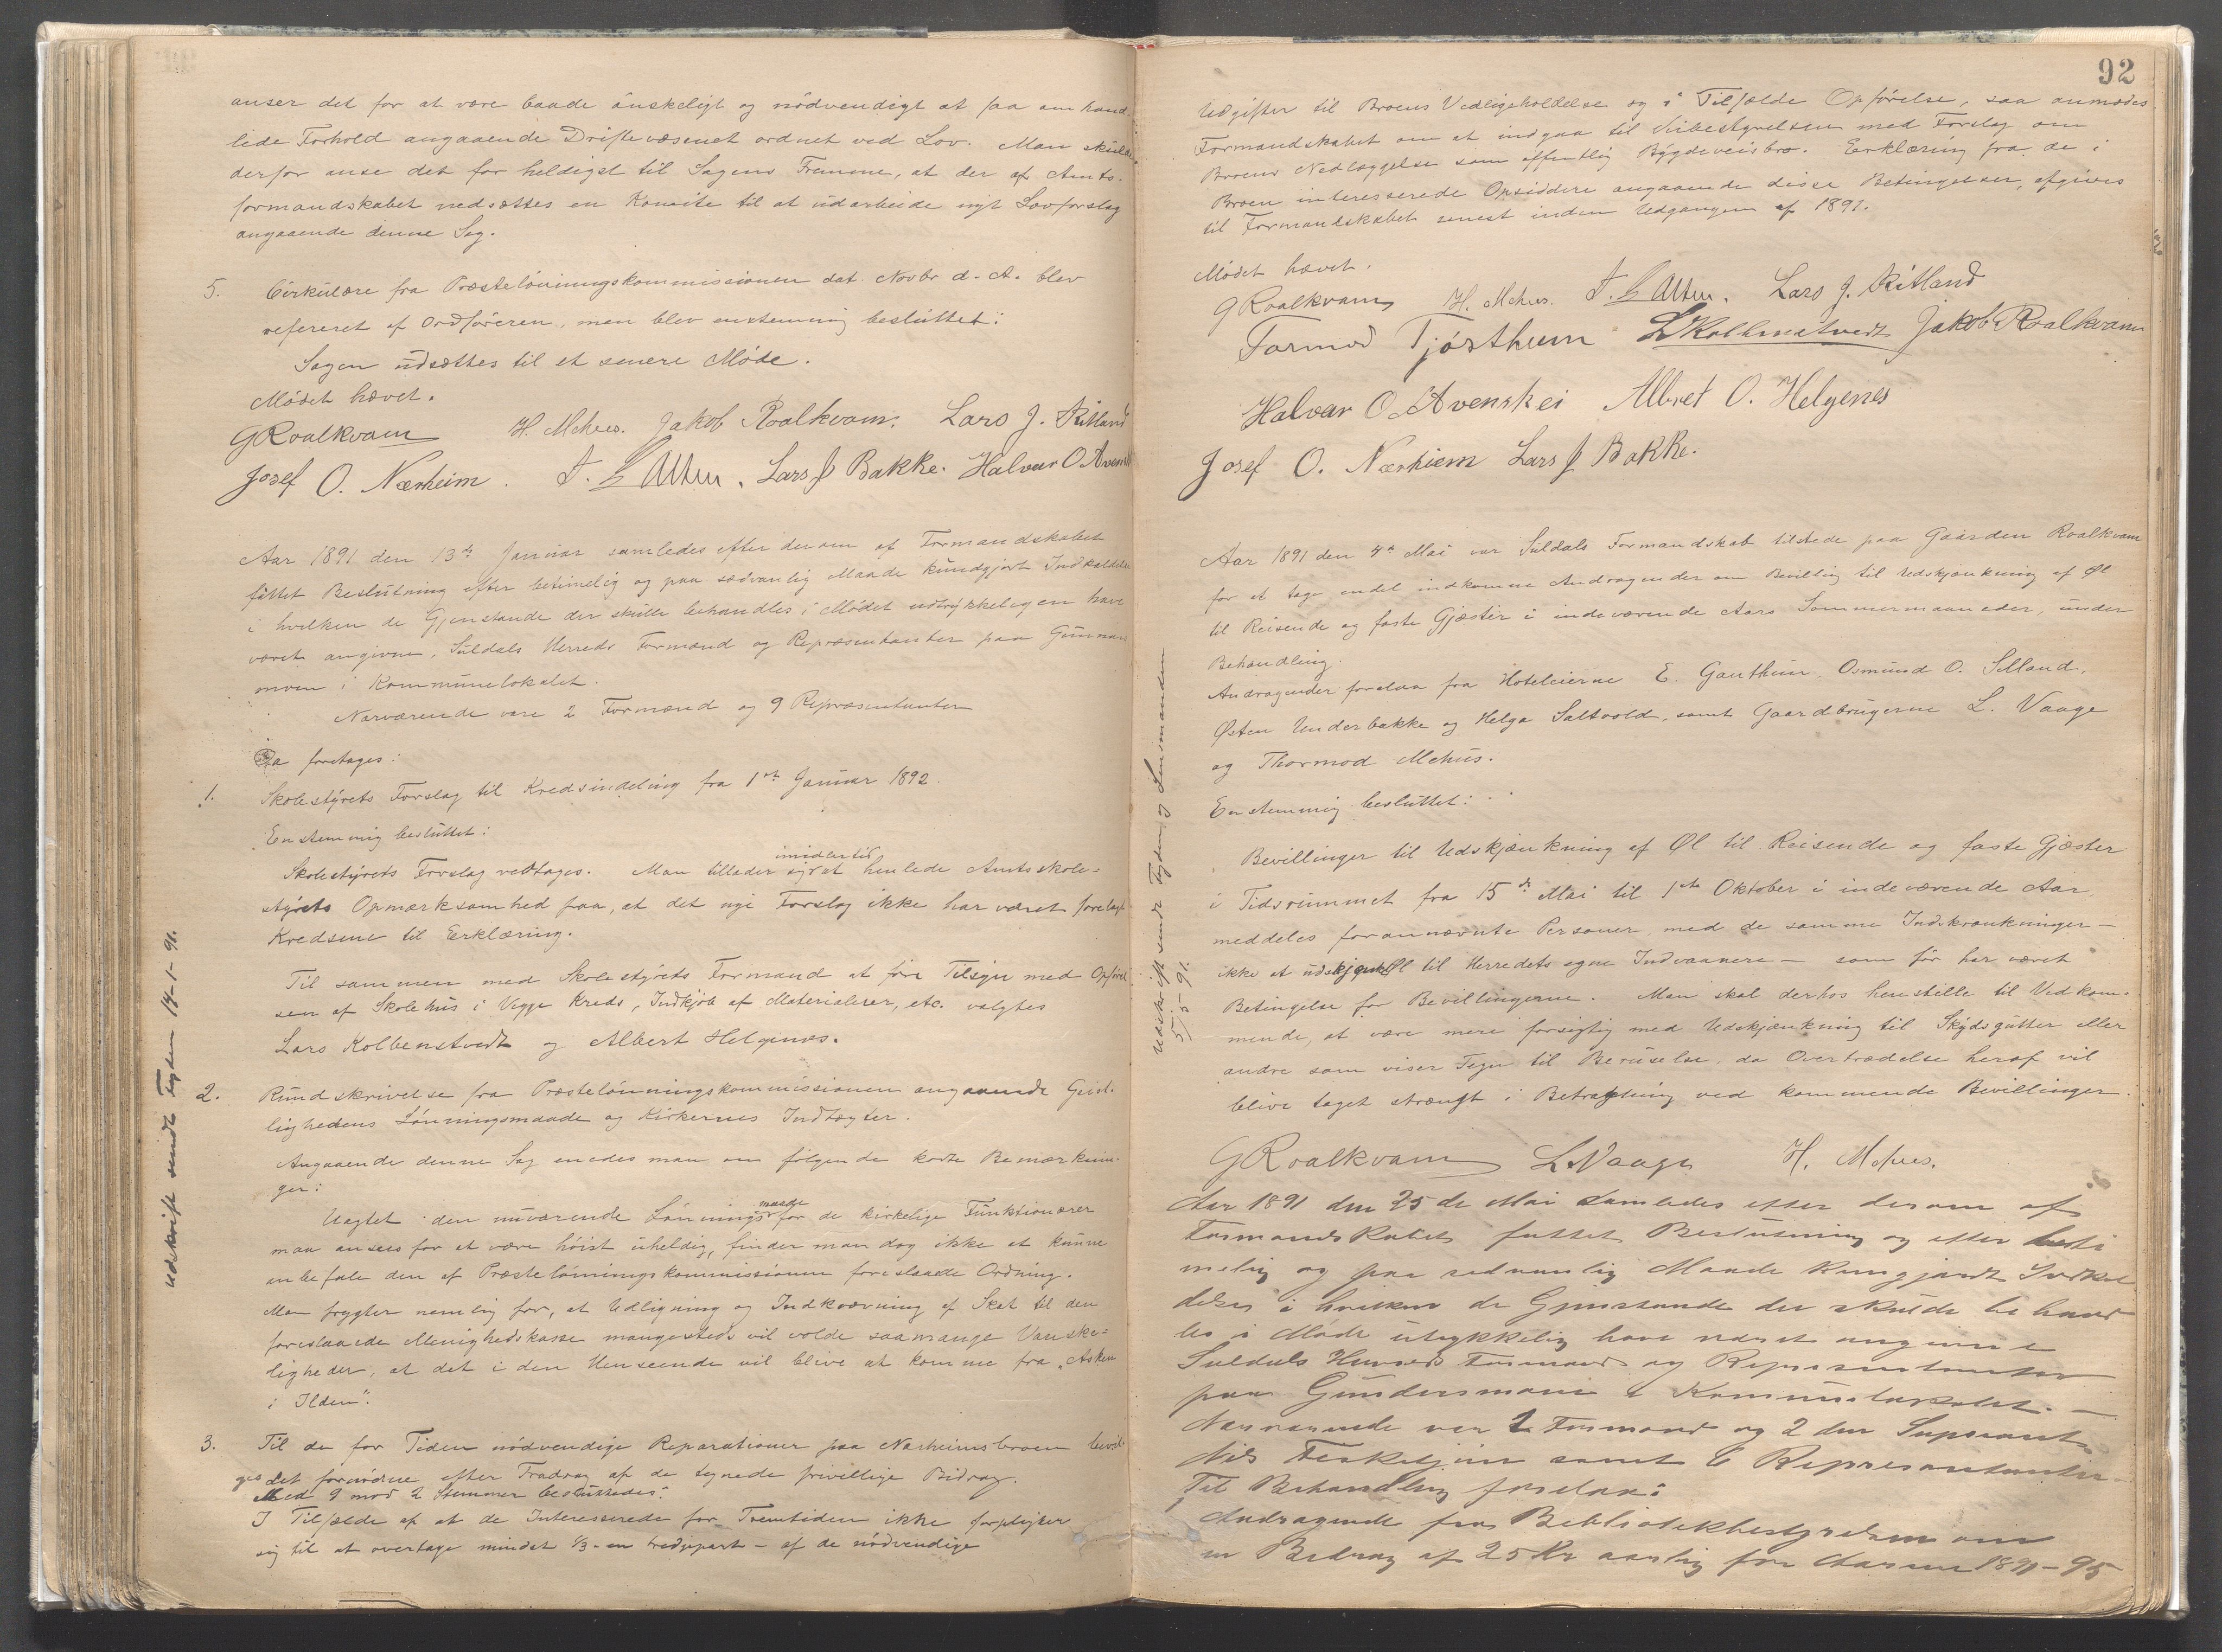 anser det for at være baade ønskeligt og nødvendigt at faa omhand-
lede Forhold angaaende Driftevæsenet ordnet ved Lov. Man skulde
derfor anse det for heldigst til Sagens Fremme, at der af Amts-
formandskabet nedsættes en Komite til at udarbeide nyt Lovforslag
angaaende denne Sag.
5. Cirkulære fra Præstelønningskommissionen dat. Novbr d. A. blev
refereret af Ordføreren, men blev enstemmig besluttet:
Sagen udsættes til et senere Møde.
Mødet hævet.
GRoalkvam H. Mehus. Jakob Roalkvam. Lars J. Ritland
Josef O. Nærheim. Lars J Bakke. Halvar O Avensk
Aar 1891 den 13de Januar samledes efter derom af Formandskabet
fattet Beslutning efter betimelig og paa sædvanlig Maade kundgjort Indkaldelse
i hvilken de Gjenstande der skulle behandles i Mødet udtrykkeligen have
været angivne, Suldals Herreds Formænd og Repræsentanter paa Gunnars
moen i Kommunelokalet.
Nærværende vare 2 Formænd og 9 Repræsentanter
Da foretages:
1. Skolestyrets Forslag til Kredsindeling fra 1ste Januar 1892.
Enstemmig besluttet:
Skolestyrets Forslag vedtages. Man tillader sig imidlertid at henlede Amtsskole-
styrets Opmærksomhed paa, at det nye Forslag ikke har været forelagt
Kredsene til Erklæring.
Til sammen med Skolestyrets Formand at føre Tilsyn med Opførel
sen af Skolehus i Vegge Kreds, Indkjøb af Materialier, etc. valgtes
Lars Kolbenstvedt og Albert Helgenæs.
2. Rundskrivelse fra Præstelønningskommissionen angaaende Geist-
lighedens Lønningsmaade og Kirkernes Indtægter.
Angaaende denne Sag enedes man om følgende korte Bemærknin-
ger:
Uagtet den nuværende Lønningsmaade for de kirkelige Funktionærer
maa ansees for at være høist uheldig, finder man dog ikke at kunne
anbefale den af Præstelønningskommissionen foreslaaede Ordning.
Man frygter nemlig for, at Udligning og Indkrævning af Skat til den
foreslaaede Menighedskasse mangesteds vil volde saamange Vanske-
ligheder, at det i den Henseende vil blive at komme fra „Asken
i Ilden".
3. Til de for Tiden nødvendige Reparationer paa Nærheimsbroen bevil-
ges det fornødne efter Fradrag af de tegnede frivillige Bidrag.
Med 9 mod 2 Stemmer besluttedes:
I Tilfælde af at de Interesserede for Fremtiden ikke forpligter
sig til at overtage mindst 1/3 - en tredjepart - af de nødvendige
Udskrift sendt Fogden 14-1-91.
92
Udgifter til Broens Vedligeholdelse og i Tilfælde Opførelse, saa anmodes
Formandskabet om at indgaa til Veibestyrelsen med Forslag om
Broens Nedlæggelse som offentlig Bygdeveisbro. Erklæring fra de i
Broen interesserede Opsiddere angaaende disse Betingelser, afgives
til Formandskabet senest inden Udgangen af 1891.
Mødet hævet.
GRoalkvam H. Mehus. Lars J. Ritland
Tormod Tjøsthem LKolbenstvedt Jakob Roalkvam
Halvar O Avenskei Albret O. Helgenes
Josef O. Nærhiem Lars J Bakke.
Aar 1891 den 4de Mai var Suldals Formandskab tilstede paa Gaarden Roalkvam
for at tage endel indkomne Andragender om Bevilling til Udskjænkning af Øl
til Reisende og faste Gjæster i indeværende Aars Sommermaaneder, under
Behandling.
Andragender forelaa fra Hoteleierne E. Gauthun, Osmund O. Selland,
Østen Underbakke og Helga Saltvold, samt Gaardbrugerne L. Vaage
og Thormod Mehus.
Enstemmig besluttet:
Bevillinger til Udskjænkning af Øl til Reisende og faste Gjæster
i Tidsrummet fra 15de Mai til 1ste Oktober i indeværende Aar,
meddeles forannævnte Personer, med de samme Indskrænkninger -
ikke at udskjænke Øl til Herredets egne Indvaanere - som før har været
Betingelse for Bevillingerne. Man skal derhos henstille til Vedkom-
mende, at være mere forsigtig med Udskjænkning til Skydsgutter eller
andre som viser Tegn til Beruselse, da Overtrædelse heraf vil
blive taget strængt i Betragtning ved kommende Bevillinger.
GRoalkvam LVaage H. Mehus.
Udskrift sendt Fogden og Lensmanden
5/5-91.
Aar 1891 den 25de Mai samledes efter derom af
Formandskabet fattet Beslutning og efter beti
melig og paa sedvanlig Maade kungjordt Indkal
delse i hvilken de Gjenstande der skulde behand
les i Møde utrykkelig have været angivne
Suldals Herreds Formænd og Representanter
paa Gundersmoen i Kommunelokalet. -
Nærværende var 2 Formænd og 2den Suppleant
Nils Fisketjøn samt 6 Representanter.
Til Behandling forelaa:
1 Andragende fra Bibliotekbestyrelsen om
en Bidrag af 25 Kr aarlig for Aarene 1891-95